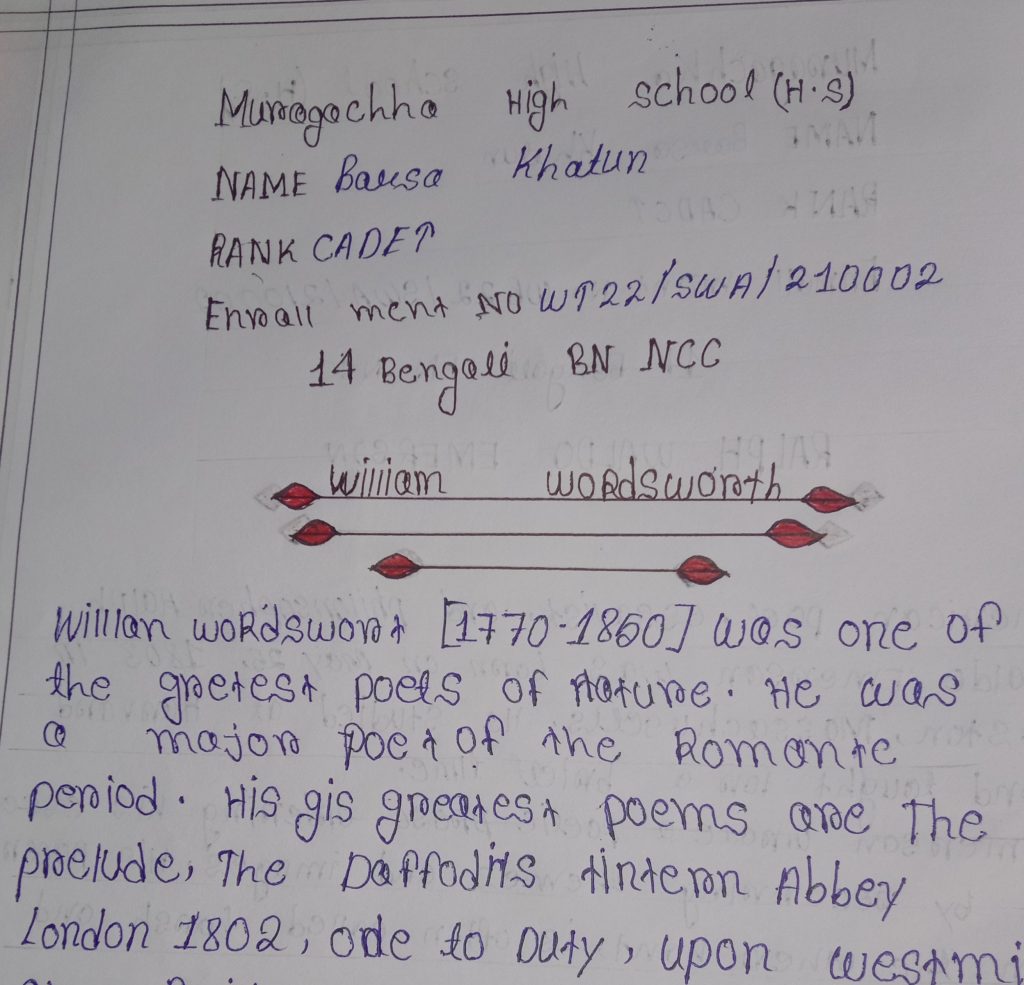 Muragachha High School (H.S)
NAME Barsa Khatun
RANK CADET
Enroall ment NO WT22/SWA/210002
14 Bengali BN NCC
William Wordsworth
Willian wordswort [1770-1850] was one of
the gretest poets of Nature. He was
a major poet of the Romantc
period. His gis greatest poems are The
prelude, The Daffodils tintern Abbey
London 1802, ode to Duty, upon westmi